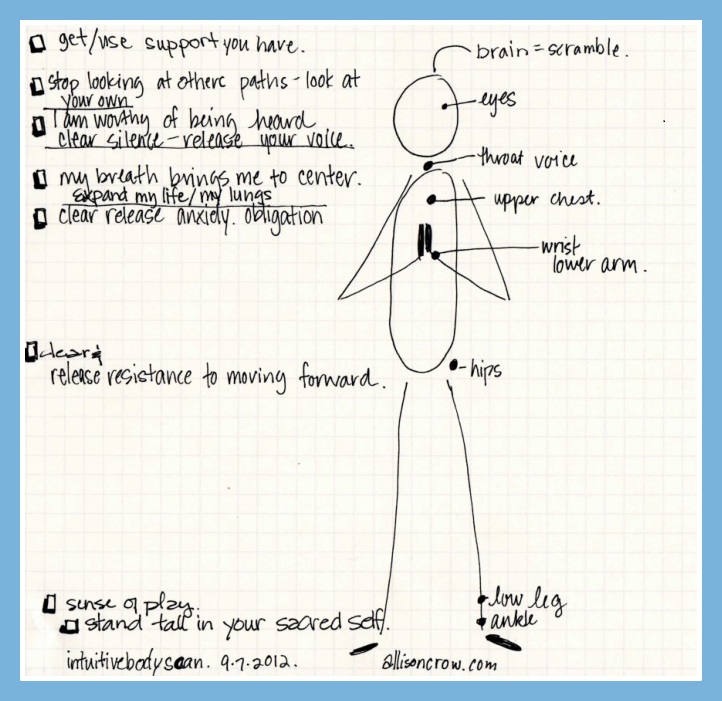 get/use support you have.
stop looking at others paths - look at
your own
I am worthy of being heard
clear silence - release your voice.
my breath brings me to center.
expand my life/my lungs
clear release anxiety. obligation
clear &
release resistance to moving forward.
sense of play.
stand tall in your sacred self.
intuitivebodyscan. 9.7.2012.
brain = scramble.
eyes
throat voice
upper chest.
wrist
lower arm.
hips
low leg
ankle
allisoncrow.com